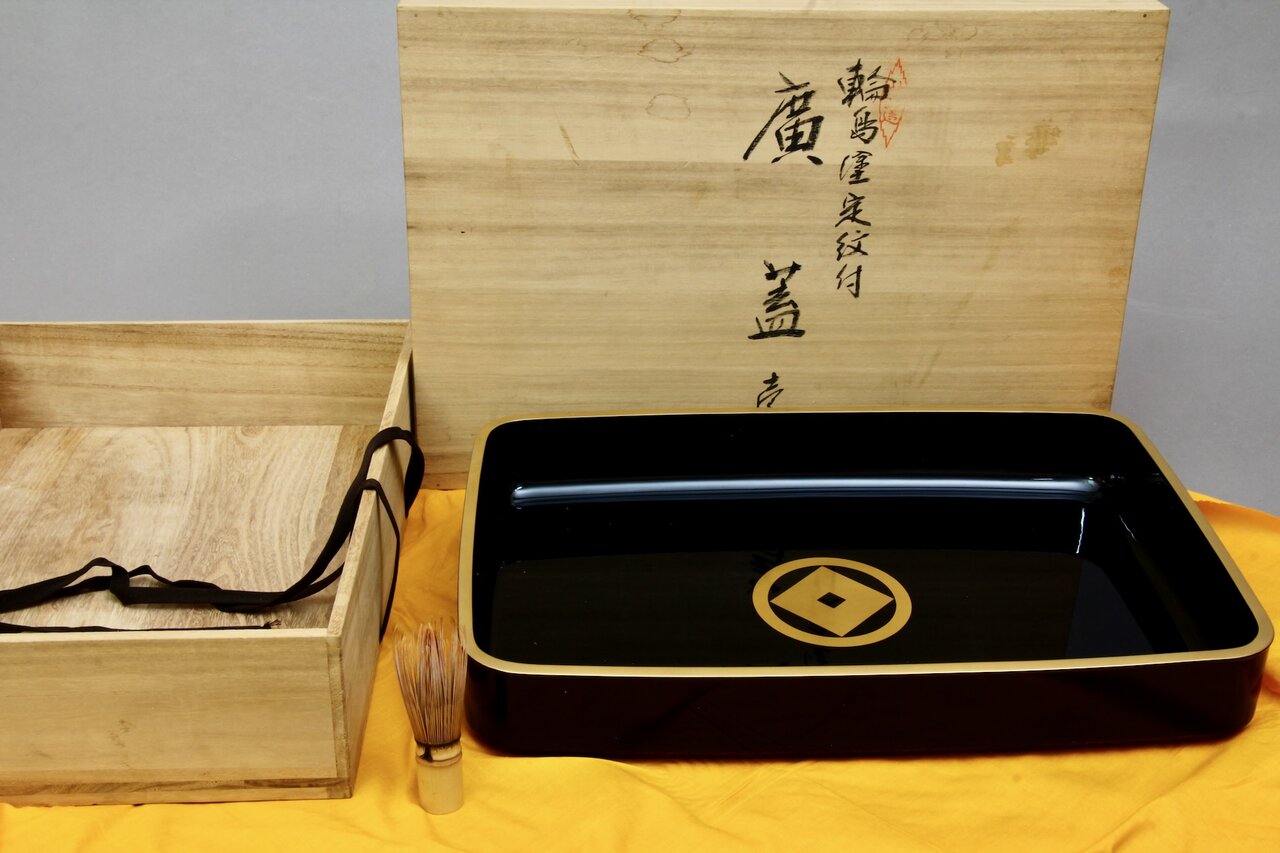 輪島塗定紋付
廣蓋